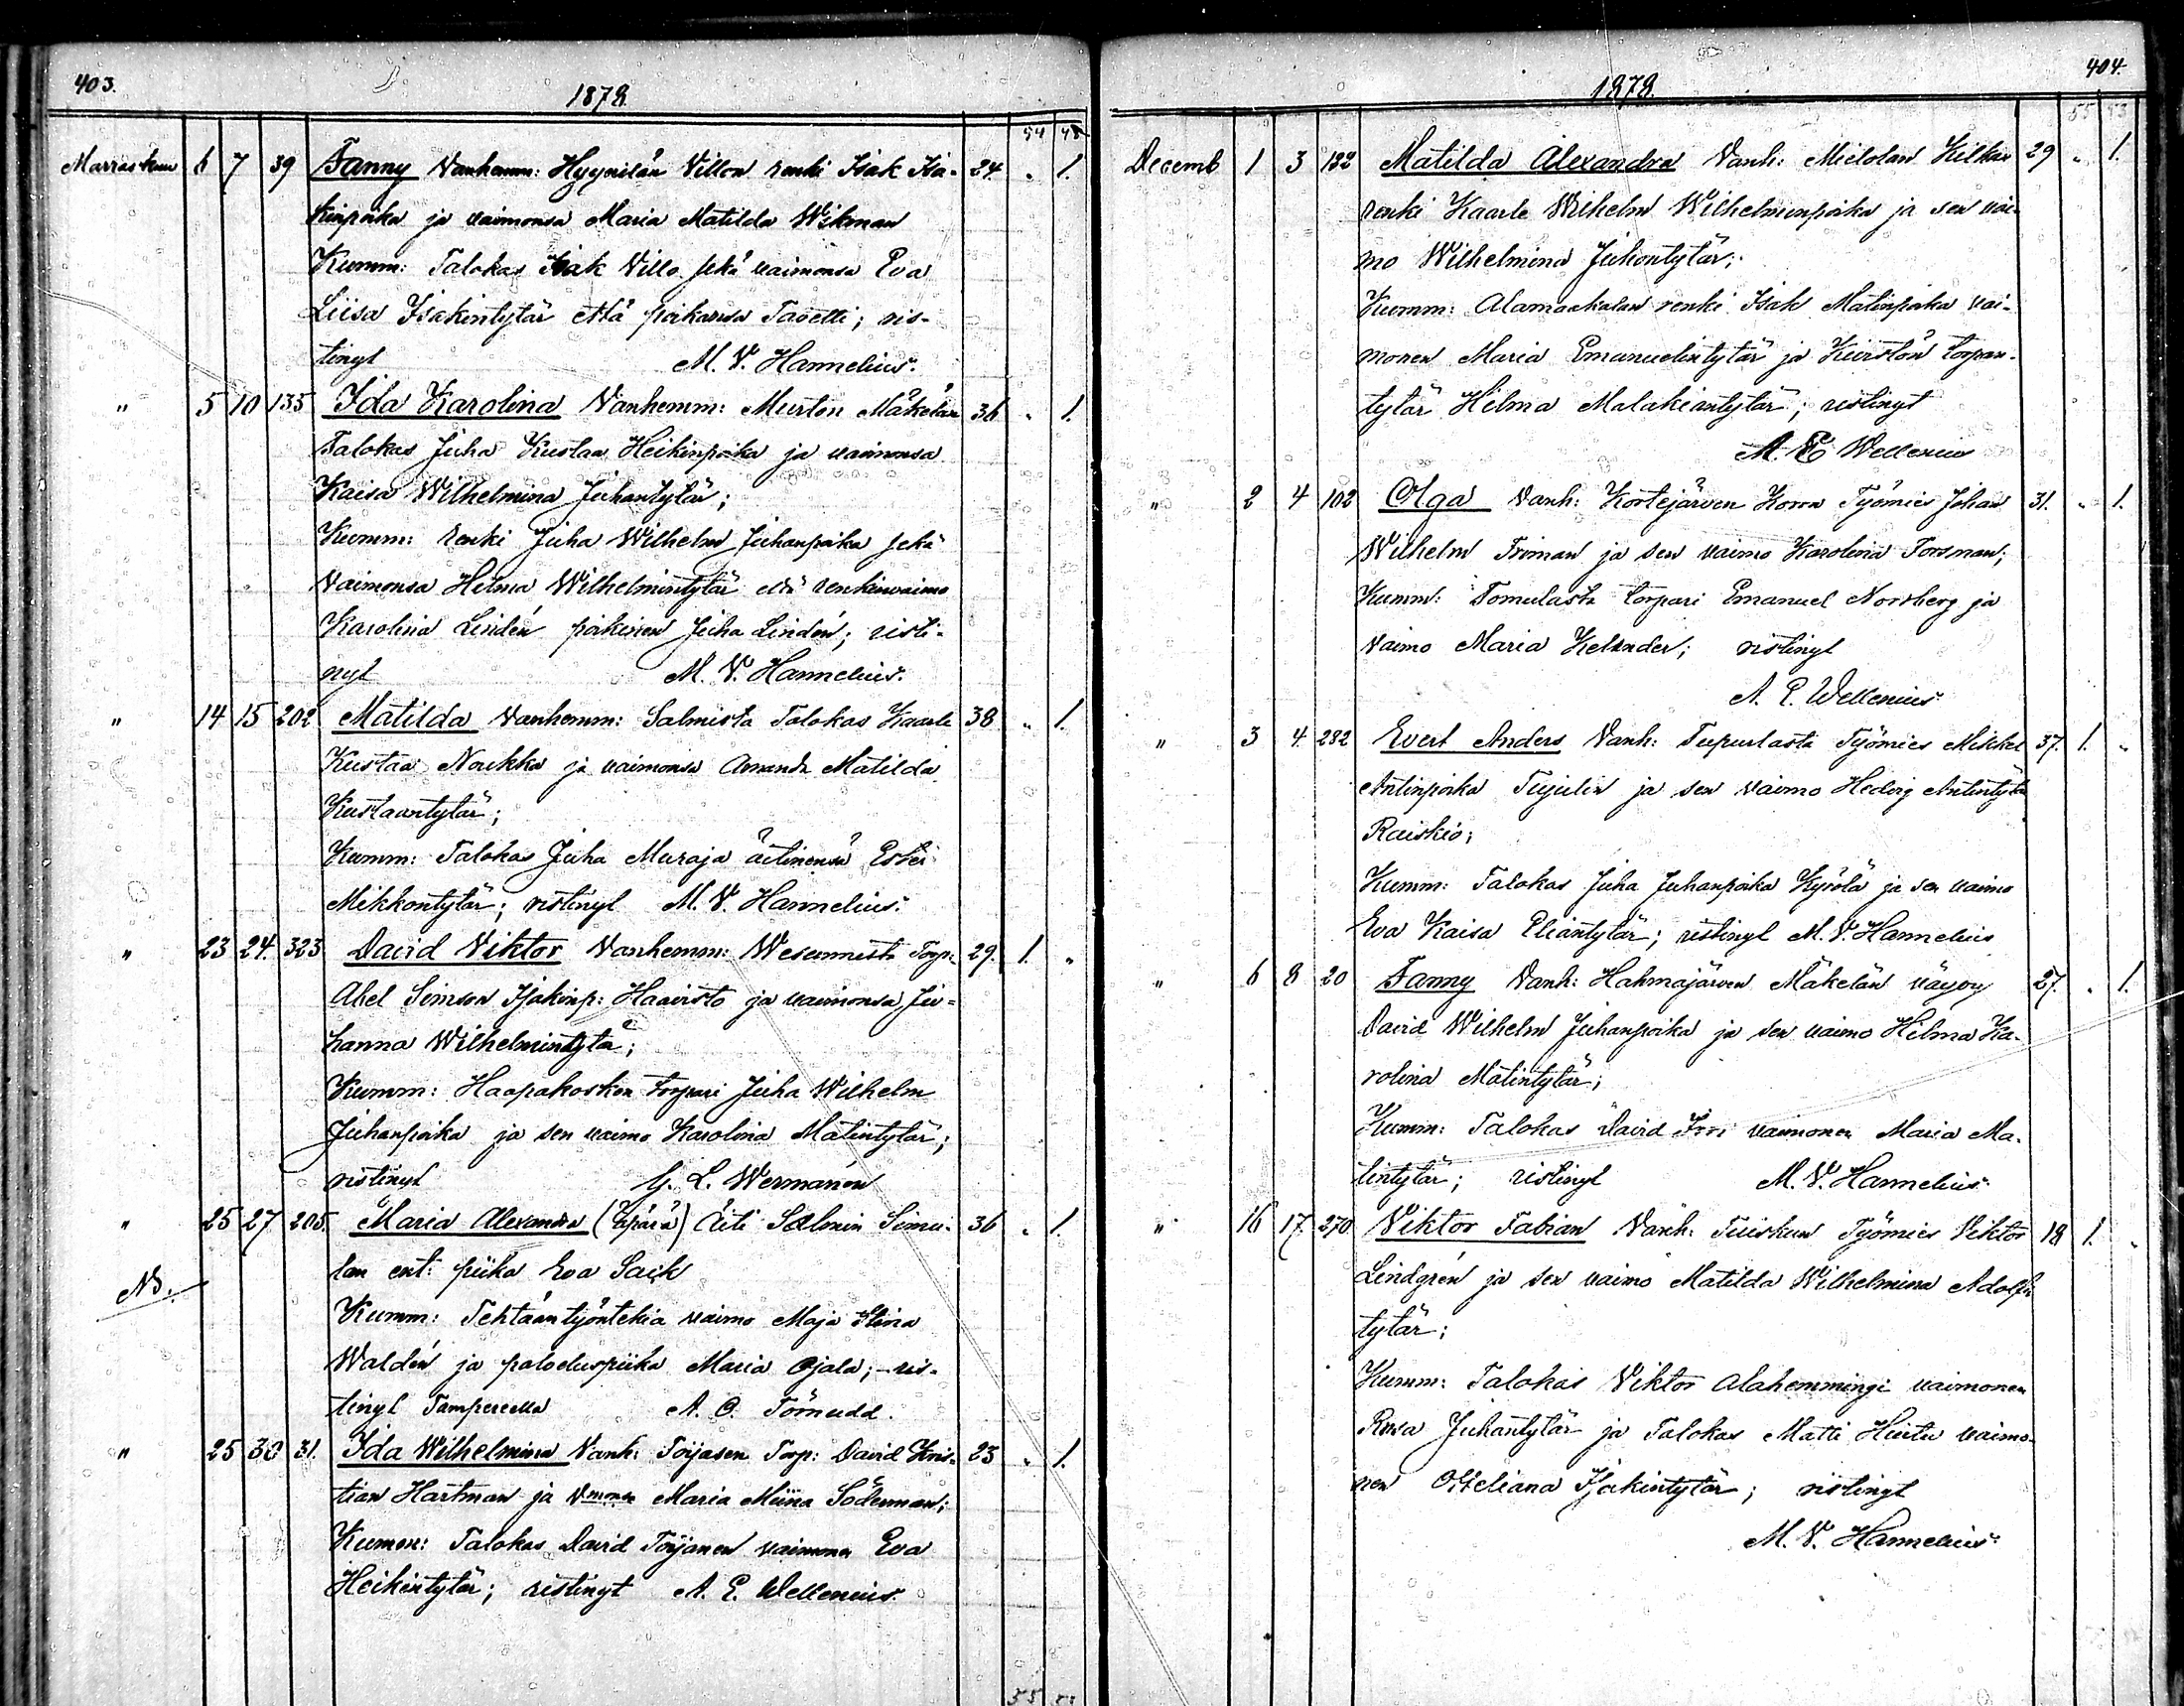 403.
1878
54 48
Marraskuu 6 7 39 Fanny Vanhemm: Hyynilän Villon renki Isak Isa- 24. " 1.
kinpoika ja vaimonsa Maria Matilda Wikman
Kumm: Talokas Isak Villo sekä vaimonsa Eva
Liisa Isakintytär että poikansa Taavetti; ris-
tinyt M. V. Hannelius.
" 5 10 135 Ida Karolina Vanhemm: Murton Mäkelän 36 " 1.
Talokas Juha Kustaa Heikinpoika ja vaimonsa
Kaisa Wilhelmina Juhantytär;
Kumm: renki Juha Wilhelm Juhanpoika sekä
vaimonsa Helma Wilhelmintytär että renkinvaimo
Karolina Lindén poikinen Juha Lindén; risti-
nyt M. V. Hannelius.
" 14 15 202 Matilda Vanhemm: Salmista Talokas Kaarle 38 " 1.
Kustaa Noukka ja vaimonsa Amanda Matilda
Kustaantytär;
Kumm: Talokas Juha Muraja äitinensä Esteri
Mikkontytär; ristinyt M. V. Hannelius.
" 23 24. 323 David Viktor Vanhemm: Wesunnista Torp: 29. 1. "
Abel Simson Isakinp: Haavisto ja vaimonsa Ju-
hanna Wilhelmintytä;
Kumm: Haapakosken torpari Juha Wilhelm
Juhanpoika ja sen vaimo Karolina Matintytär;
ristinyt G. L. Wermanen
" 25 27 205. Maria Alexandra (äpärä) Äiti Salmin Simu- 36 " 1.
lan ent: piika Eva Saik
NB.
Kumm: Tehtaantyöntekiä vaimo Maja Stina
Waldén ja palveluspiika Maria Ojala; ris-
tinyt Tampereella A. O. Törnudd.
" 25 30 31. Ida Wilhelmina Vanh: Torjasen Torp: David Kris- 23 " 1.
tian Hartman ja Vmonsa Maria Miina Söderman;
Kumm: Talokas David Torjanen vaimonen Eva
Heikintytär; ristinyt A. E. Wellenius.
55
404.
1878.
55 53
Decemb 1 3 132 Matilda Alexandra Vanh: Mielolan Kilkan 29 " 1.
renki Kaarle Wilhelm Wilhelminpoika ja sen vai-
mo Wilhelmina Juhontytär;
Kumm: Alamaakalan renki Isak Matinpoika vai-
monen Maria Emanuelintytär ja Kuiriston torpan-
tytär Hilma Malakiantytär; ristinyt
A. E. Wellenius
" 2 4 102 Olga Vanh: Kortejärven Koron Työmies Johan 31. " 1.
Wilhelm Friman ja sen vaimo Karolina Forsman;
Kumm: Tomulasta torpari Emanuel Norrberg ja
vaimo Maria Kelander; ristinyt
A. E. Wellenius
" 3 4. 282 Evert Anders Vanh: Tupurlasta Työmies Mikkel 37. 1. "
Antinpoika Tujulin ja sen vaimo Hedvig Antintytär
Raiskio;
Kumm: Talokas Juha Juhanpoika Kyrölä ja sen vaimo
Eva Kaisa Eliantytär; ristinyt M. V. Hannelius
" 6 8 20 Fanny Vanh: Hahmajärven Mäkelän vävy 27. " 1.
David Wilhelm Juhanpoika ja sen vaimo Hilma Ka-
rolina Matintytär;
Kumm: Talokas David vaimonen Maria Ma-
tintytär; ristinyt M. V. Hannelius.
" 16 17. 270 Viktor Fabian Vanh: Tuiskun Työmies Viktor 18 1. "
Lindgrén ja sen vaimo Matilda Wilhelmina Adolfin
tytär;
Kumm: Talokas Viktor Alahemmingi vaimonen
Rosa Juhantytär ja Talokas Matti Huitu vaimo-
nen Otteliana Isakintytär; ristinyt
M. V. Hannelius.